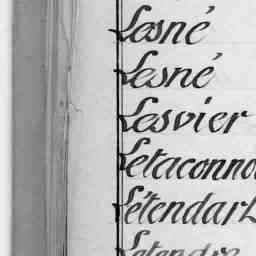 Lesné
Lesné
Lesvier
Letaconno
Létendart
Letendre